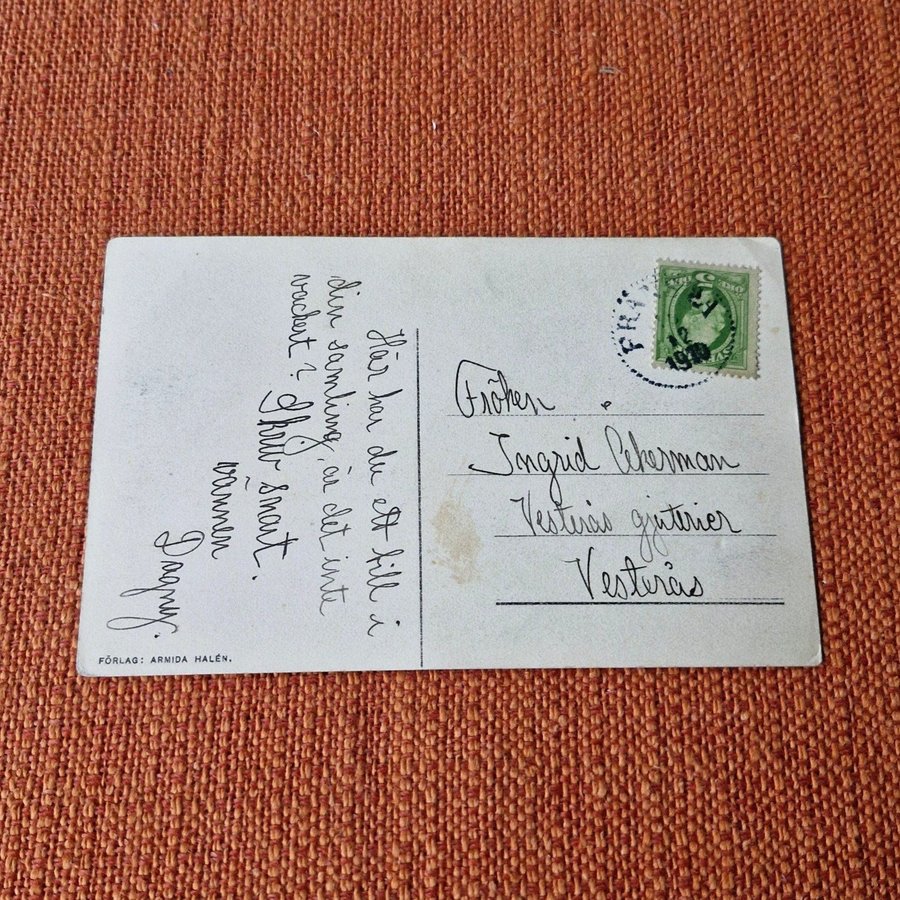 Här har du ett till i
din samling, är det inte
vackert? Skriv snart.
vännen
Dagny.
FÖRLAG: ARMIDA HALÉN.
1910
Fröken
Ingrid Ekerman
Vesterås gjuterier
Vesterås